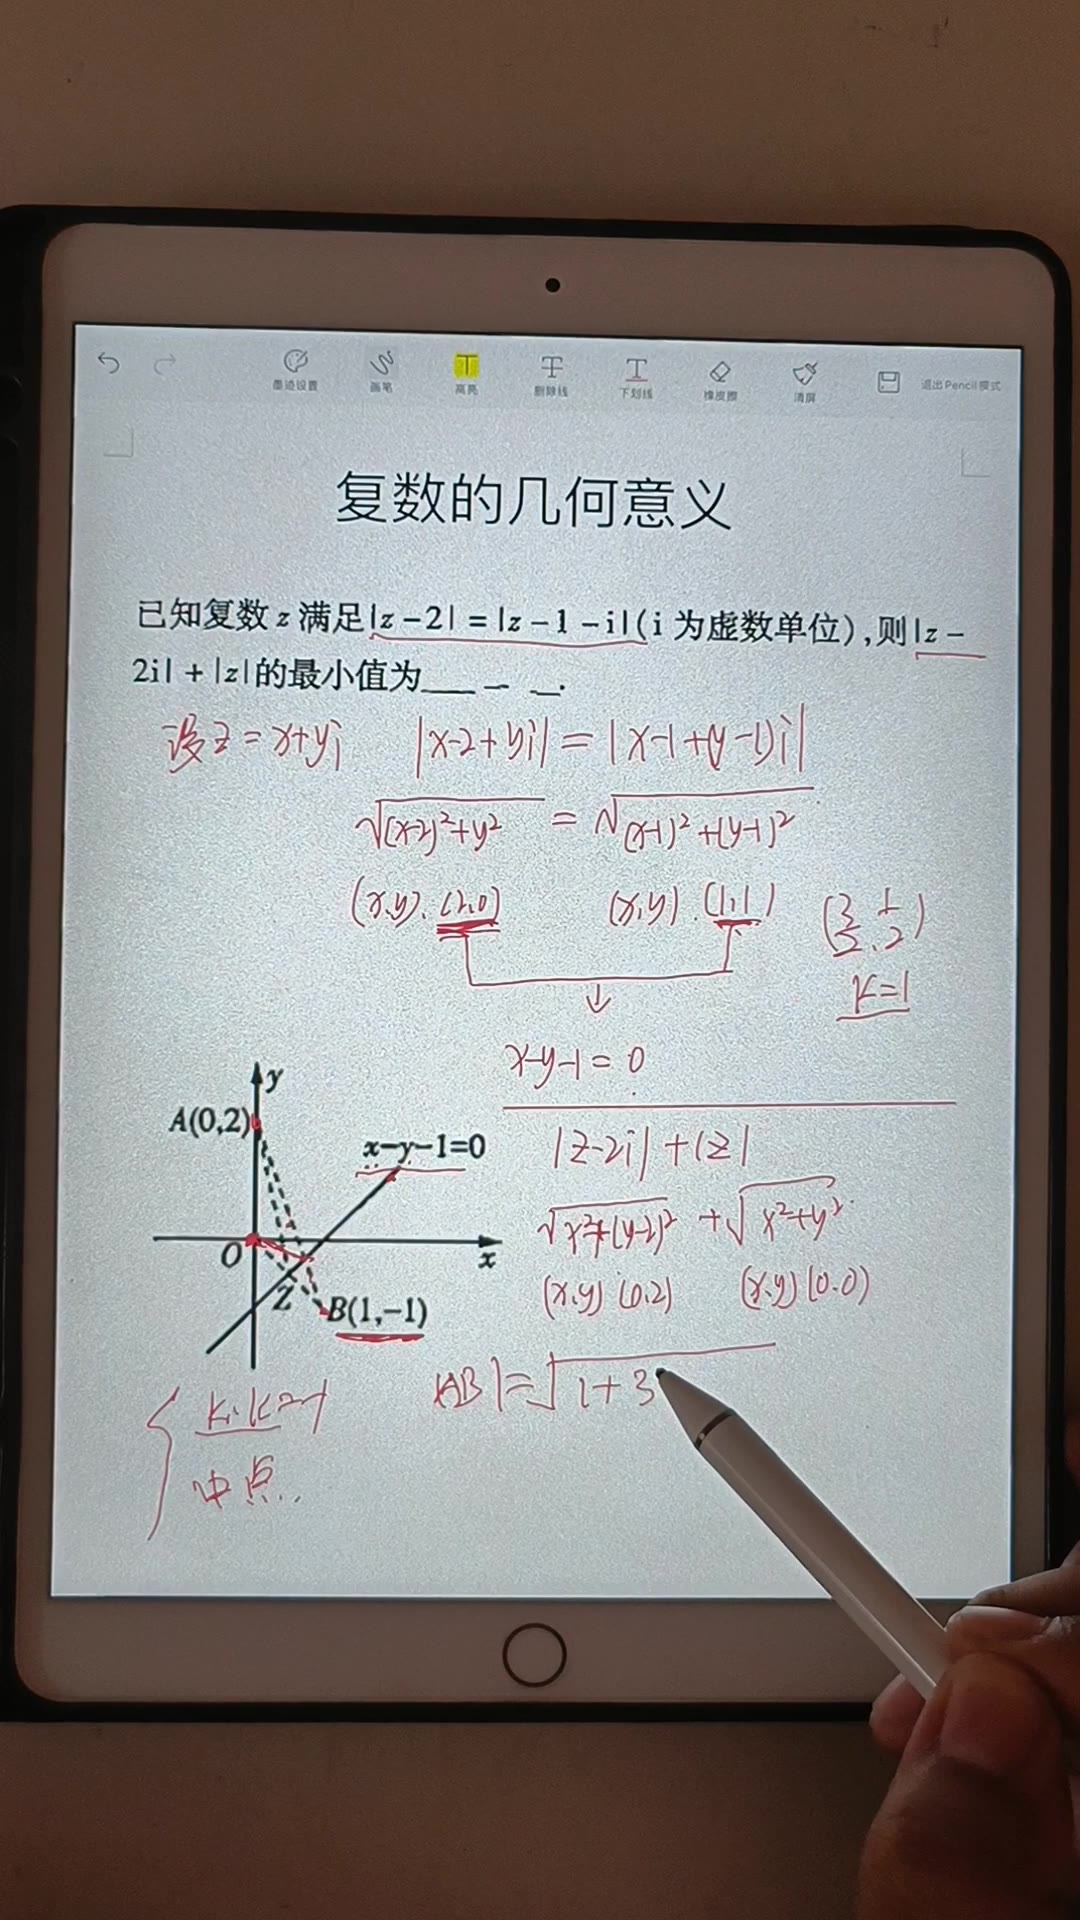 墨迹设置 画笔 高亮 删除线 下划线 橡皮擦 清屏 退出Pencil模式
复数的几何意义
已知复数z满足|z-2|=|z-1-i|(i为虚数单位),则|z-
2i|+|z|的最小值为___ _ _.
设z=x+yi |x-2+yi|=|x-1+(y-1)i|
√(x-2)²+y² = √(x-1)²+(y-1)²
(x,y).(2,0) (x,y).(1,1) (3/2,1/2)
k=1
x-y-1=0
y
A(0,2)
x-y-1=0
|z-2i|+|z|
√x²+(y-2)² +√x²+y²
O x
(x,y)(0,2) (x,y)(0,0)
Z B(1,-1)
|AB|=√1+3
中点